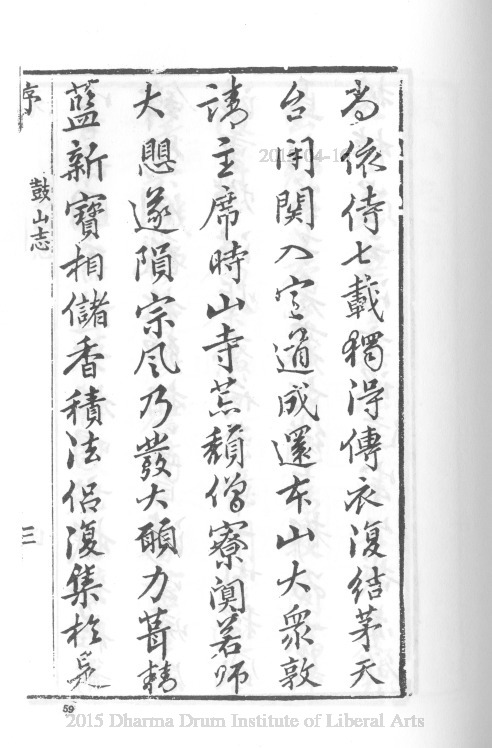 為依侍七載獨得傳衣復結茅天
台閉関入定道成還本山大眾敦
請主席時山寺荒頹僧寮闃若師
大愳遂隕宗风乃發大願力葺精
藍新寶相儲香積法侶復集於是
序
鼓山志
三
59
2015 Dharma Drum Institute of Liberal Arts